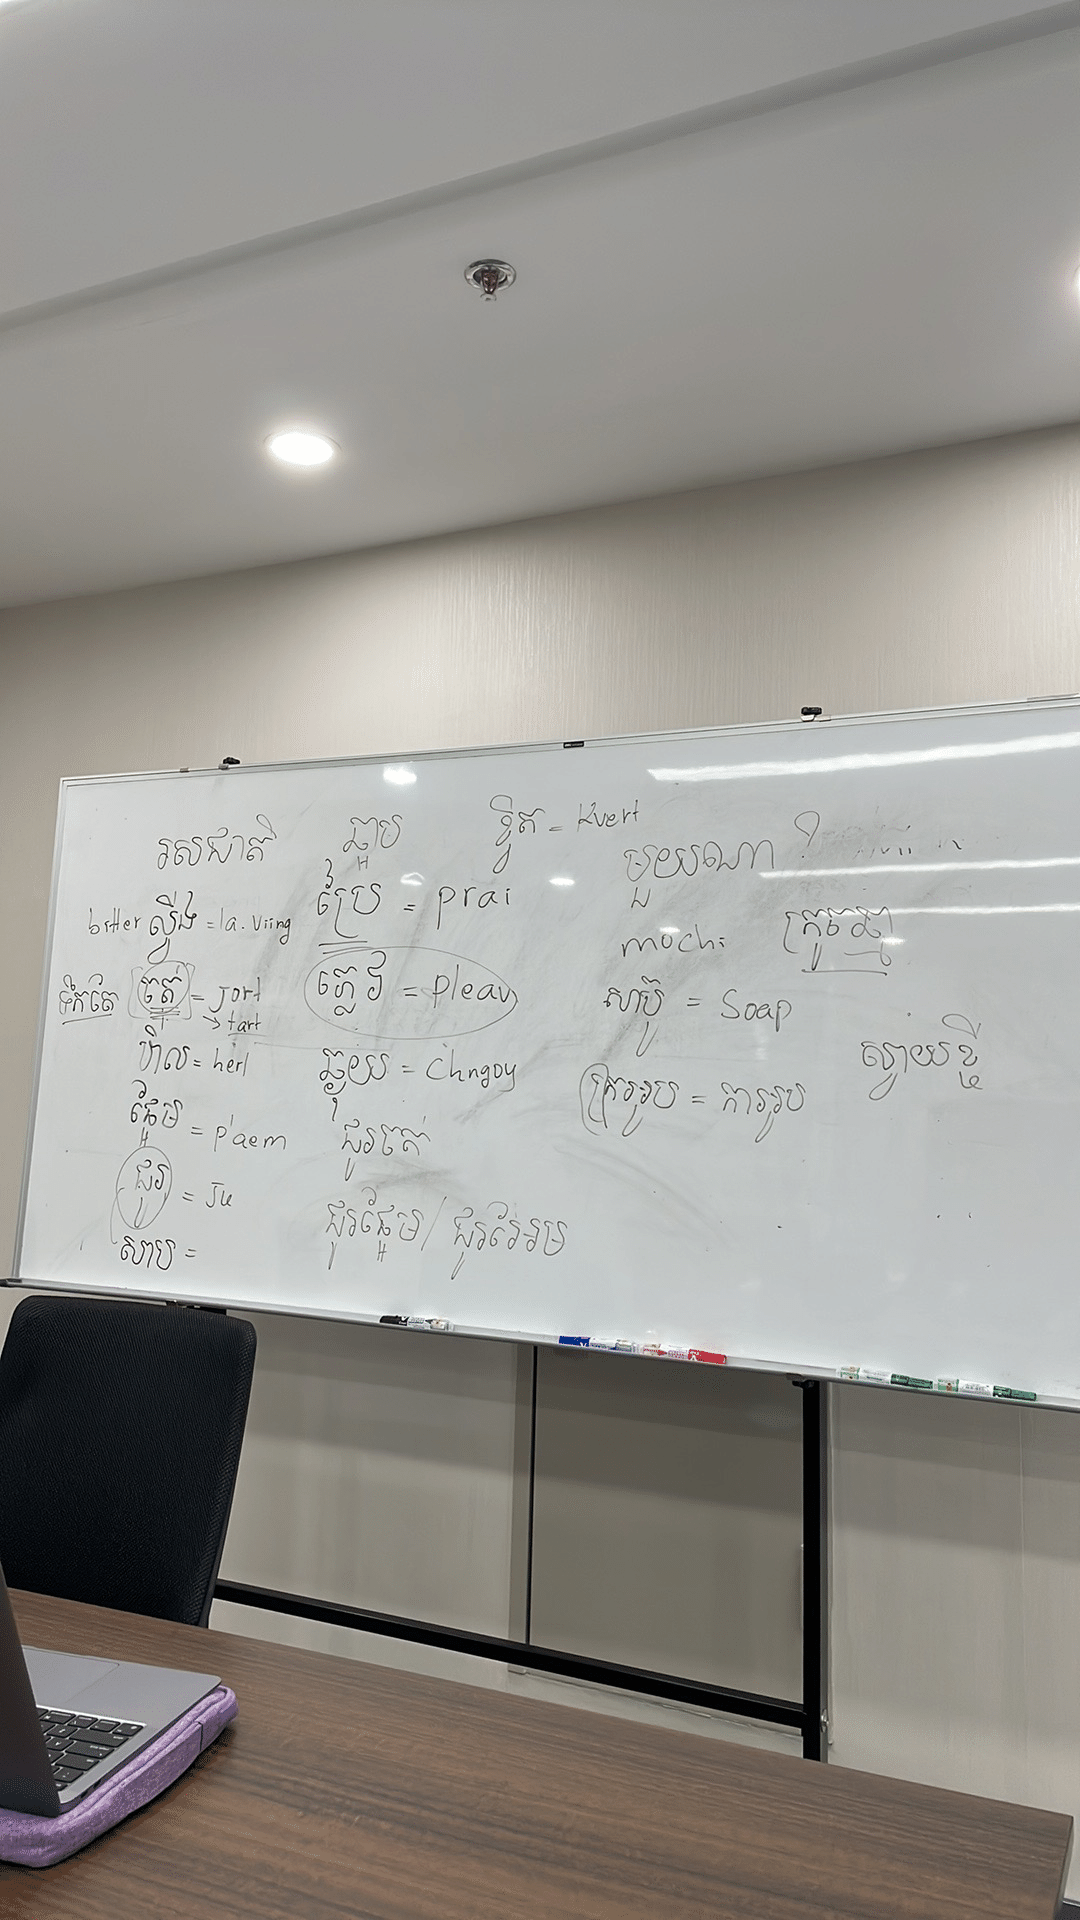 រសជាតិ
bitter ល្វីង = la.Viing
ទឹកតែ ចត់ = Jort
→ tart
ហឹល = herl
ផ្អែម = p'aem
ជូរ = Ju
សាប =
ឆ្អាប
ប្រៃ = prai
ភ្លាវ = pleav
ឆ្ងុយ = Chngoy
ជូរចត់
ជូរផ្អែម / ជូរអែម
ខ្វិត = Kvert
មួយណា ?
mochi
ក្រូចឆ្មា
សាប៊ូ = Soap
ក្រអូប = ការអូប
ស្វាយខ្ចី